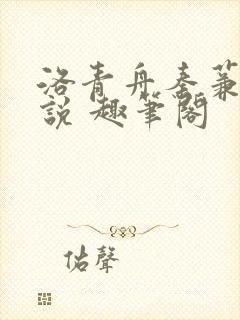 洛青舟秦蒹
說 趣筆閣
佑聲